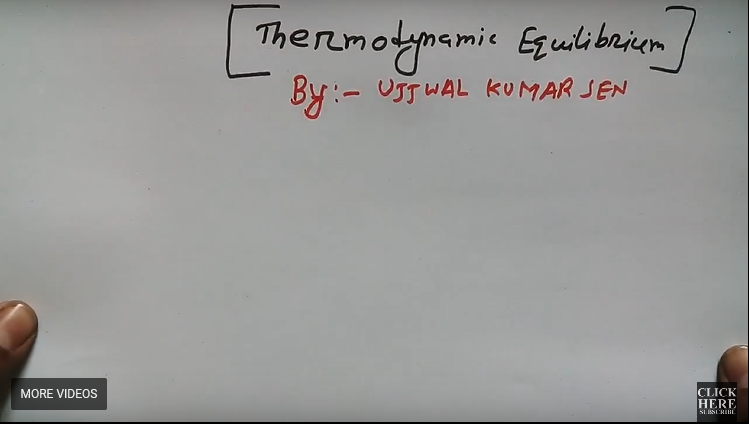 [Thermodynamic Equilibrium]
By:- UJJWAL KUMAR SEN
MORE VIDEOS
CLICK
HERE
SUBSCRIBE